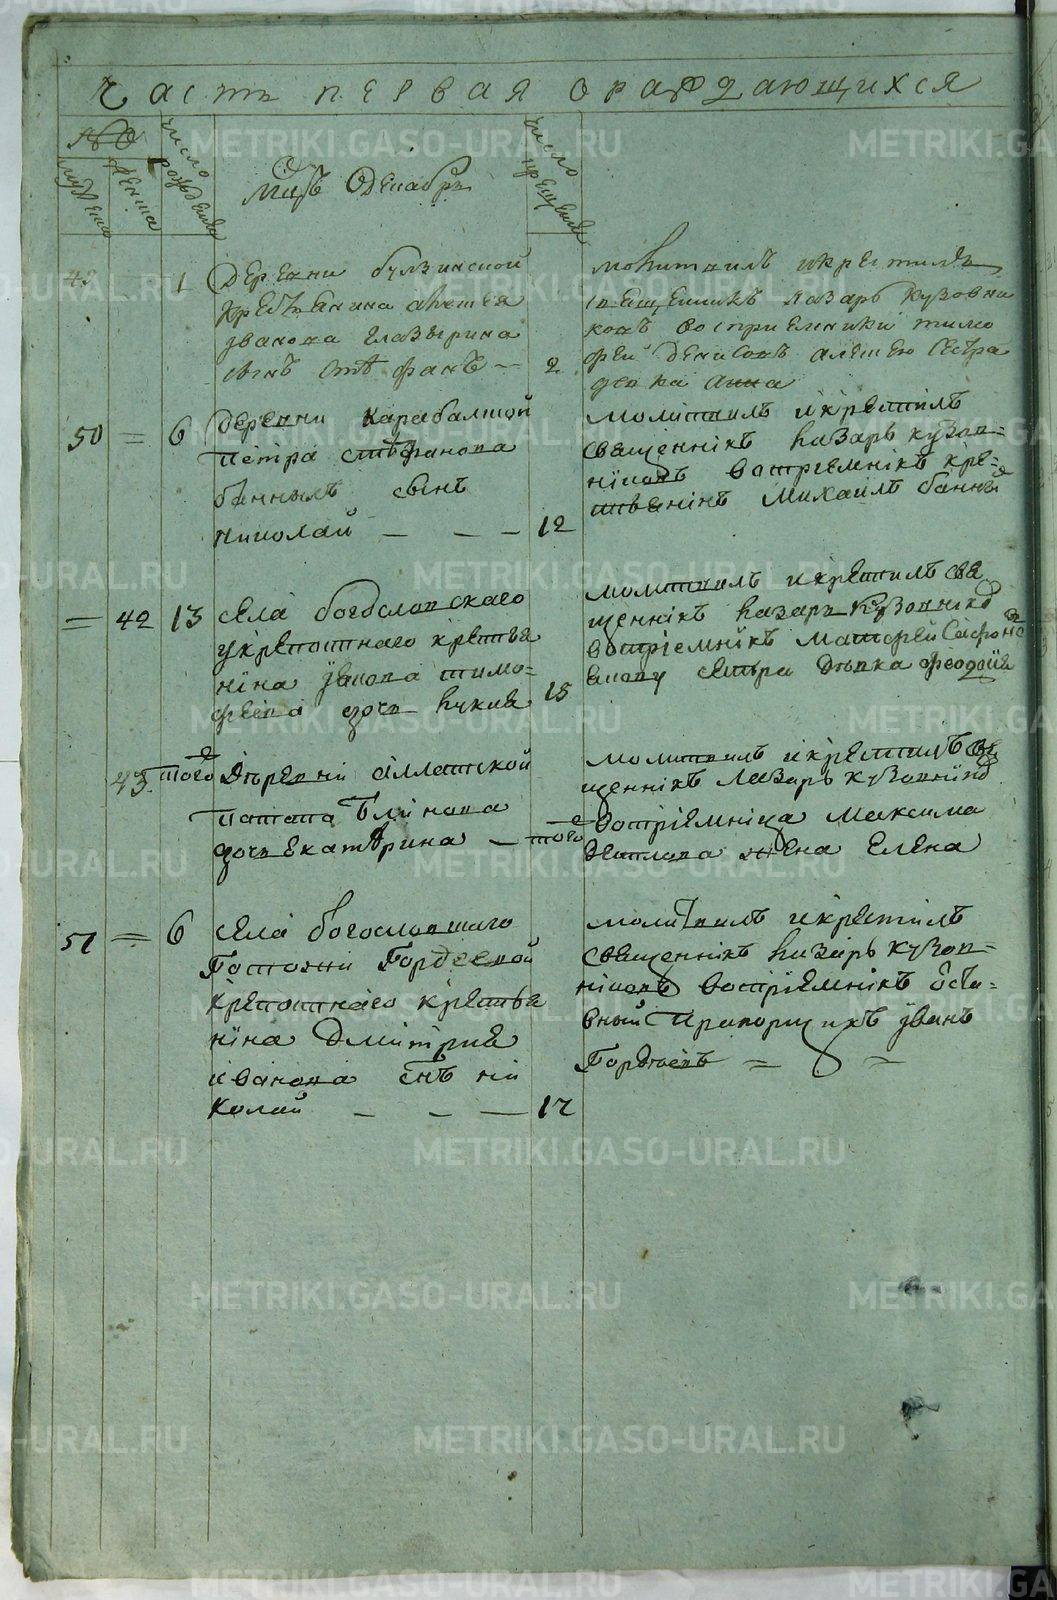 Часть первая ораждающихся
№
мужеска
женска
число рождения
Мцъ Декабрь
число крещения
49
1
Деревни булзинской
крестьянина
Ивана Глазырина
сынъ Стефанъ —
2
молитвилъ и крестилъ
священникъ Лазарь Кузовни
ковъ восприемники тимо
фей Денисовъ сестра
девка анна
50 = 6
Деревни Карабалской
Петра стефанова
банныхъ сынъ
николай — — —
12
молитвилъ и крестилъ
священнікъ Лазарь кузов=
ніковъ востріемнікъ кре=
стьянінъ Михаилъ банны
= 42 13
села богословскаго
крепотнаго крестья
ніна Івана тимо=
феева дочь Лукия
15
молитвилъ и крестилъ свя
щеннікъ Лазарь Кузовніко
востріемнікъ Матфей
сестра девка феодосия
43. того
Деревни аллатской
Потапа Блинова
дочь Екатерина —
того
молитвилъ и крестилъ свя
щеннікъ Лазарь кузовніко
востріемніца Максима
жена Елена
51 = 6
села богословшаго
Госпожи Гордеевой
крепотнаго крестья
ніна Дмитрия
иванова снъ ні
колай — — —
17
молитвилъ и крестилъ
священнікъ Лазарь кузов=
ніковъ востріемнікъ отста=
вный Прапорщикъ Іванъ
Гордеевъ = =
METRIKI.GASO-URAL.RU